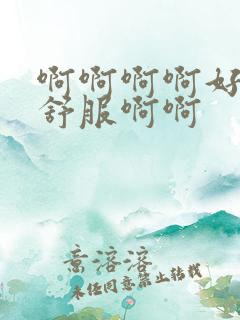 啊啊啊啊好
舒服啊啊
意溶溶
未经同意禁止转载